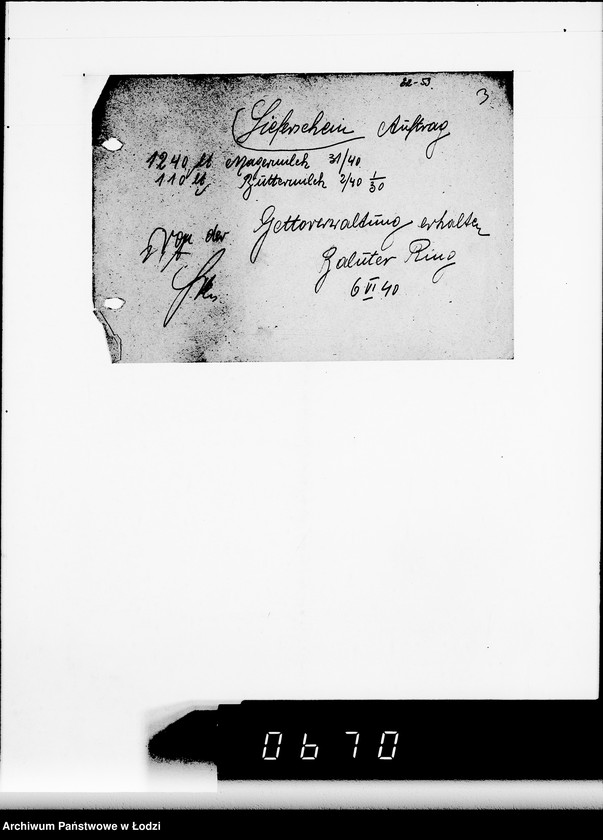 22-53
3
Lieferschein Auftrag
1240 lt Magermilch 31/40
110 lt Buttermilch 2/40 1/30
Von der Gettoverwaltung erhalten
Baluter Ring
6 VI 40
0670
Archiwum Państwowe w Łodzi